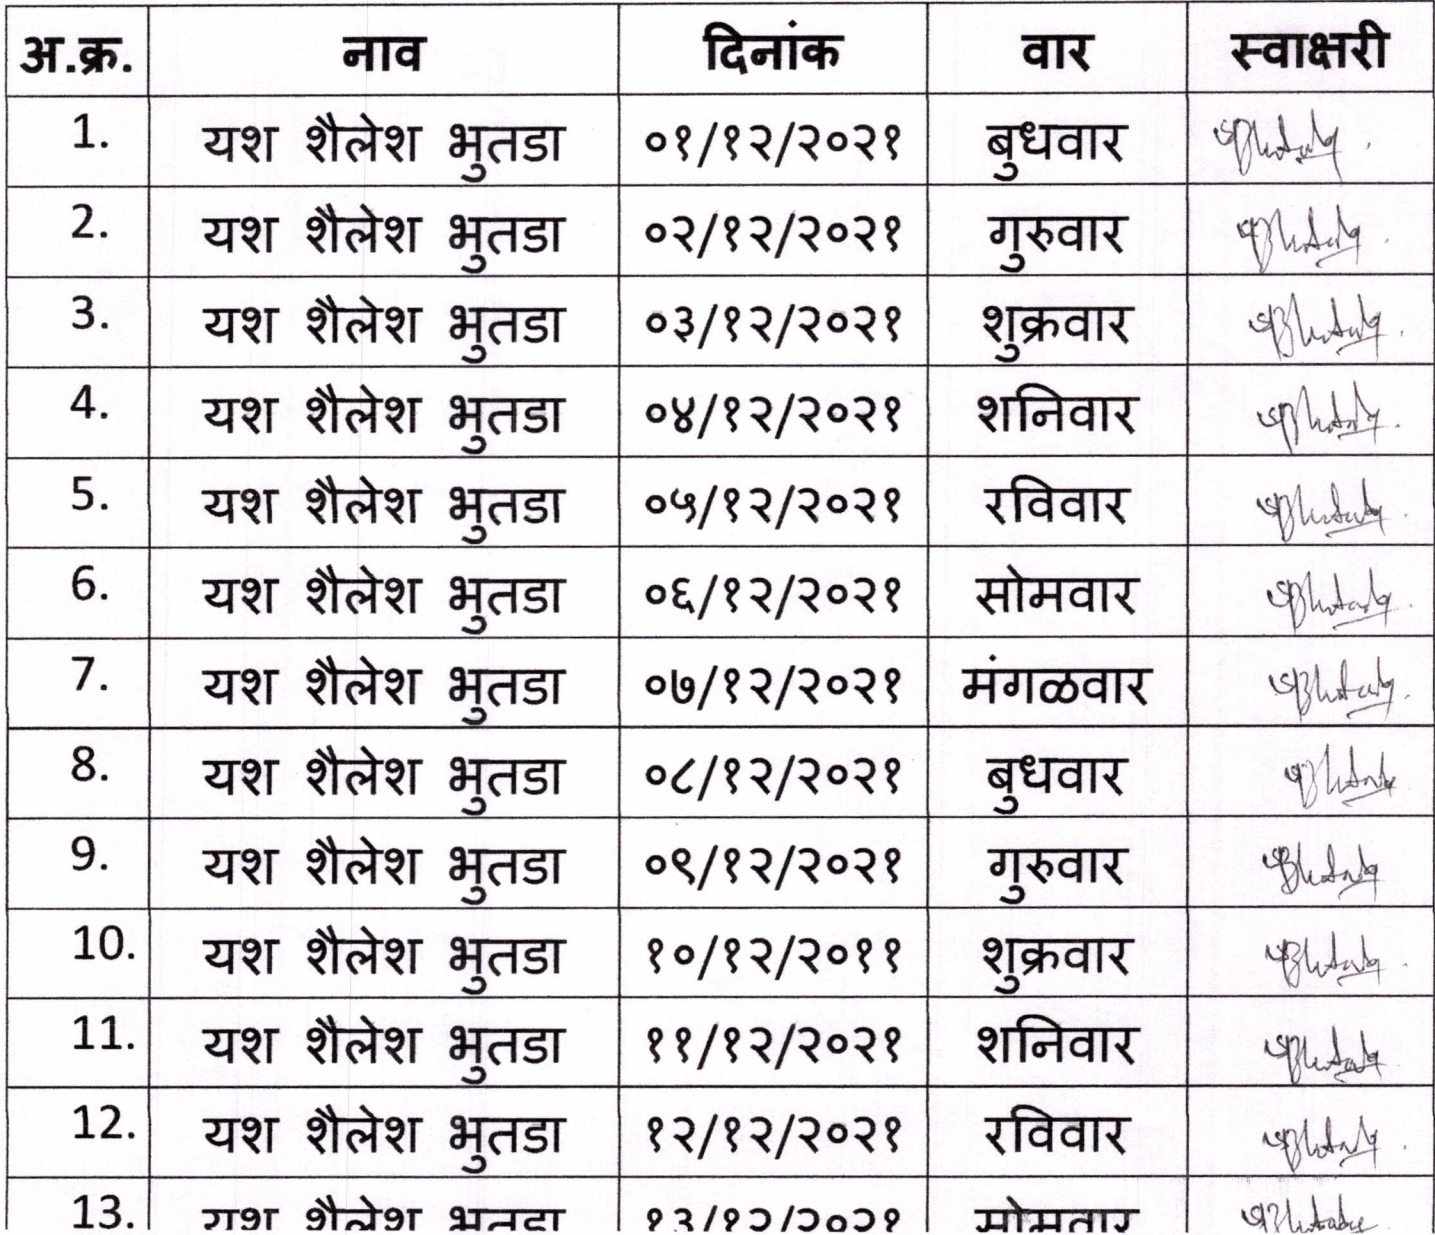 अ.क्र. नाव दिनांक वार स्वाक्षरी
1. यश शैलेश भुतडा ०१/१२/२०२१ बुधवार
2. यश शैलेश भुतडा ०२/१२/२०२१ गुरुवार
3. यश शैलेश भुतडा ०३/१२/२०२१ शुक्रवार
4. यश शैलेश भुतडा ०४/१२/२०२१ शनिवार
5. यश शैलेश भुतडा ०५/१२/२०२१ रविवार
6. यश शैलेश भुतडा ०६/१२/२०२१ सोमवार
7. यश शैलेश भुतडा ०७/१२/२०२१ मंगळवार
8. यश शैलेश भुतडा ०८/१२/२०२१ बुधवार
9. यश शैलेश भुतडा ०९/१२/२०२१ गुरुवार
10. यश शैलेश भुतडा १०/१२/२०११ शुक्रवार
11. यश शैलेश भुतडा ११/१२/२०२१ शनिवार
12. यश शैलेश भुतडा १२/१२/२०२१ रविवार
13. यश शैलेश भुतडा १३/१२/२०२१ सोमवार